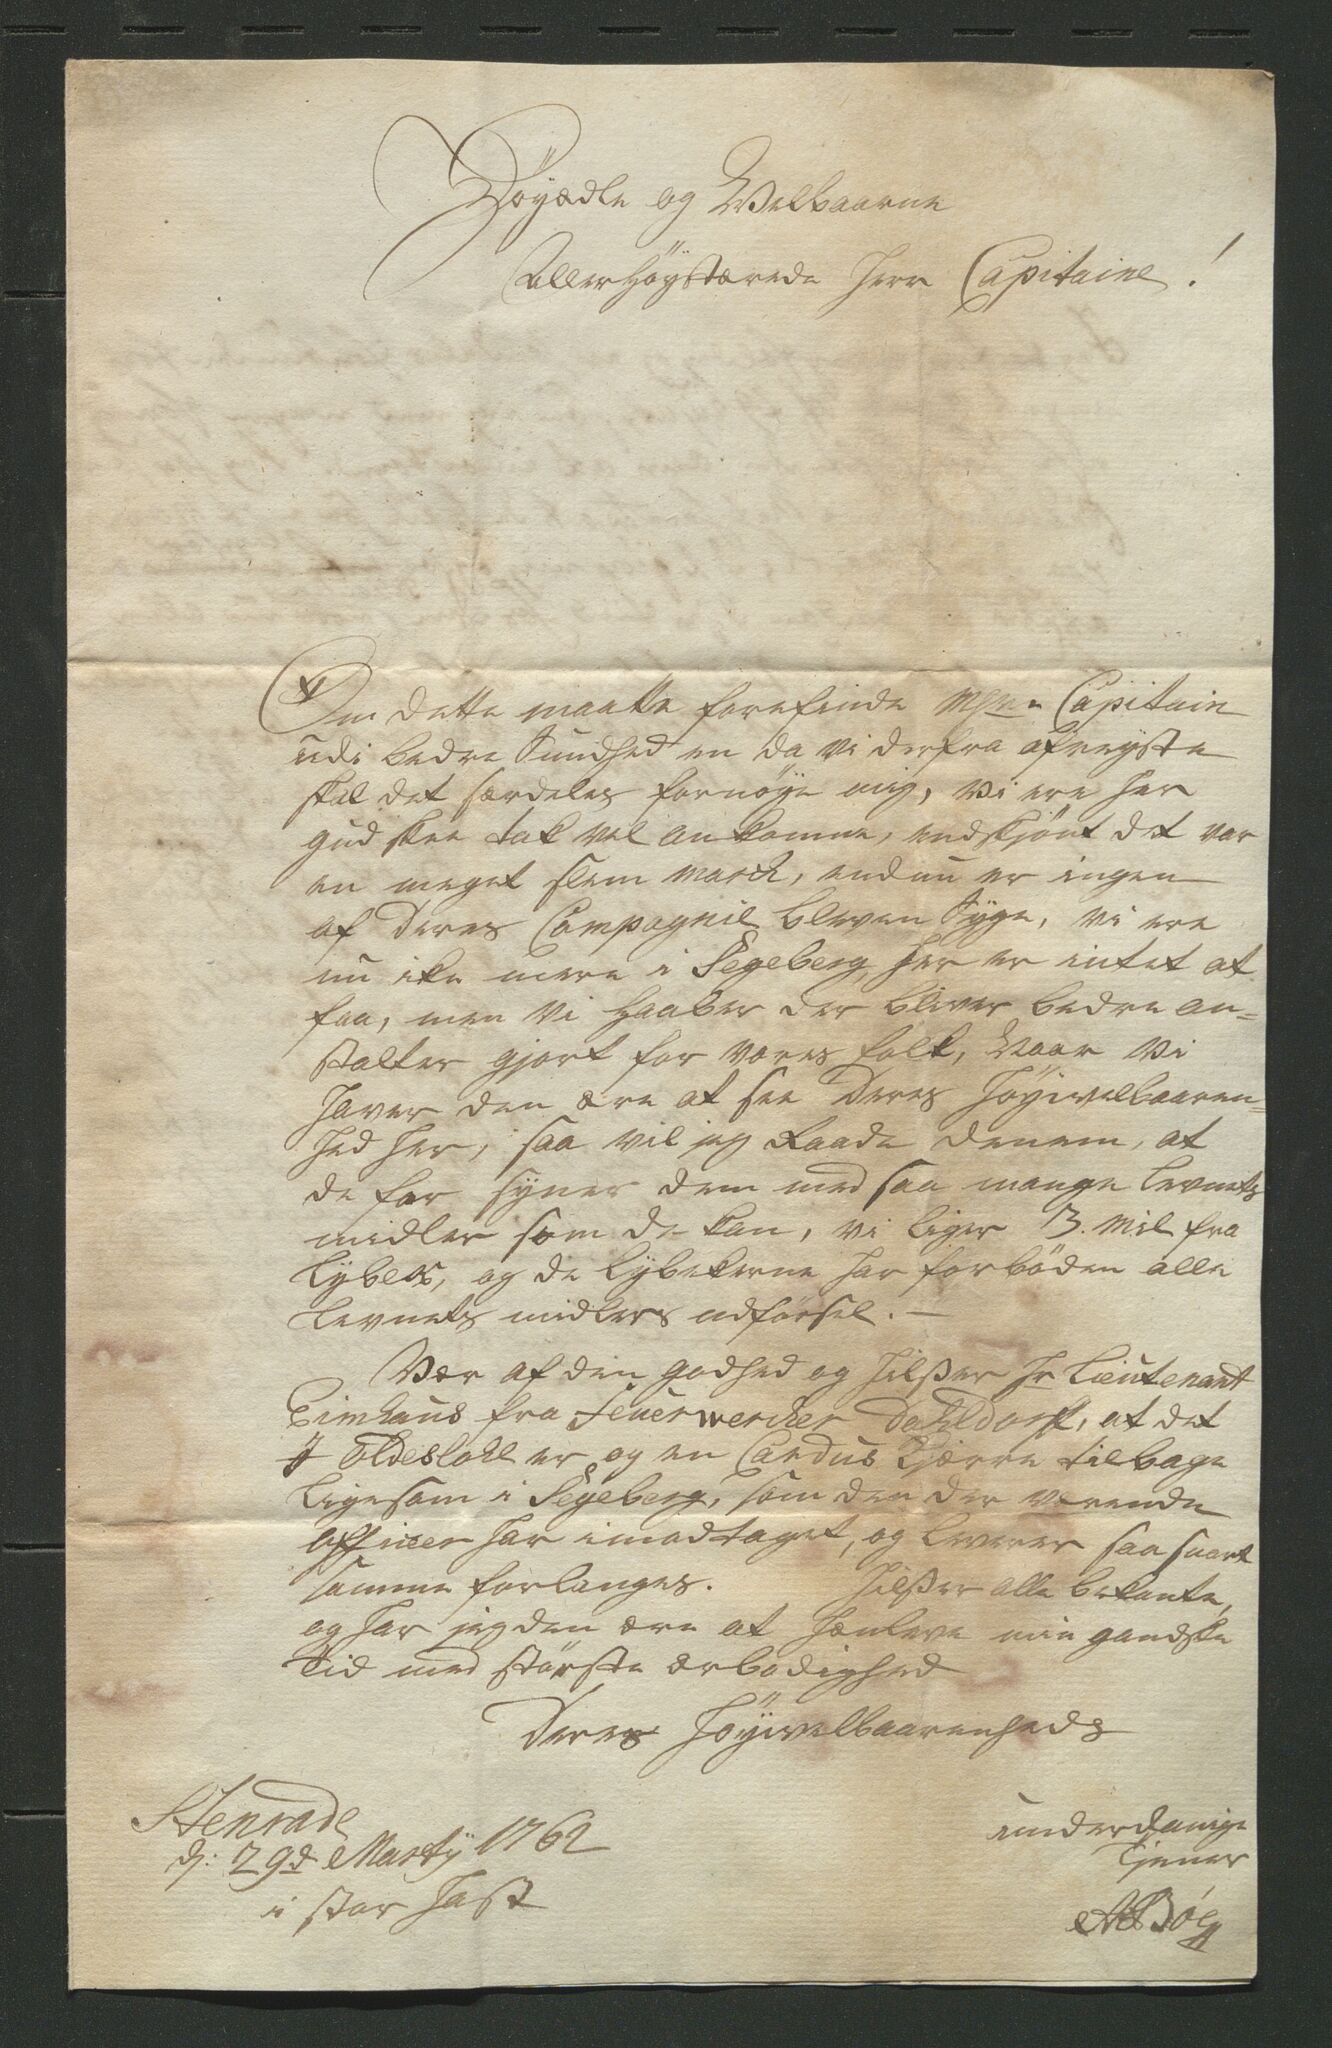 Høyædle og Welbaarne
Allerhøystærede Herr Capitaine!
Om dette maatte forefinde Capitain
udi bedre Sundhed en da vi derfra afreyste
skal det særdeles fornøye mig, vi ere her
gud skee tak vel ankomne, endskjönt det var
en meget slem march, endnu er ingen
af Deres Compagnie bleven Syge, vi ere
nu ike mere i Segeberg, her er intet at
faa, men vi haaber der bliver bedre an=
stalter gjort for vores folk, Naar vi
haver den ære at see Deres Høyvelbaaren=
hed her, saa vil jeg Raade Denem, at
de for syner dem med saa mange levnets
midler som de kan, vi liger 3. Mil fra
Lybek, og de Lybekerne har forböden alle
levnets midlers udförsel. —
Vær af den godhed og hilßer Hr Lieutenant
Eimhaus fra Feuerwercker Dahldorff, at det
I Oldeslohe er og en Cardus Kjærre tilbage
ligesom i Segeberg, som den der værende
officer har imodtaget, og leverer saa snart
samme forlanges. hilßer alle bekante,
og har jeg den ære at henleve min gandske
Tid med störste ærbødighed
Deres Høyvelbaarenheds
Stenrade
d: 29d Martÿ 1762
i stor Hast
underdanige
Tjener
ABöe